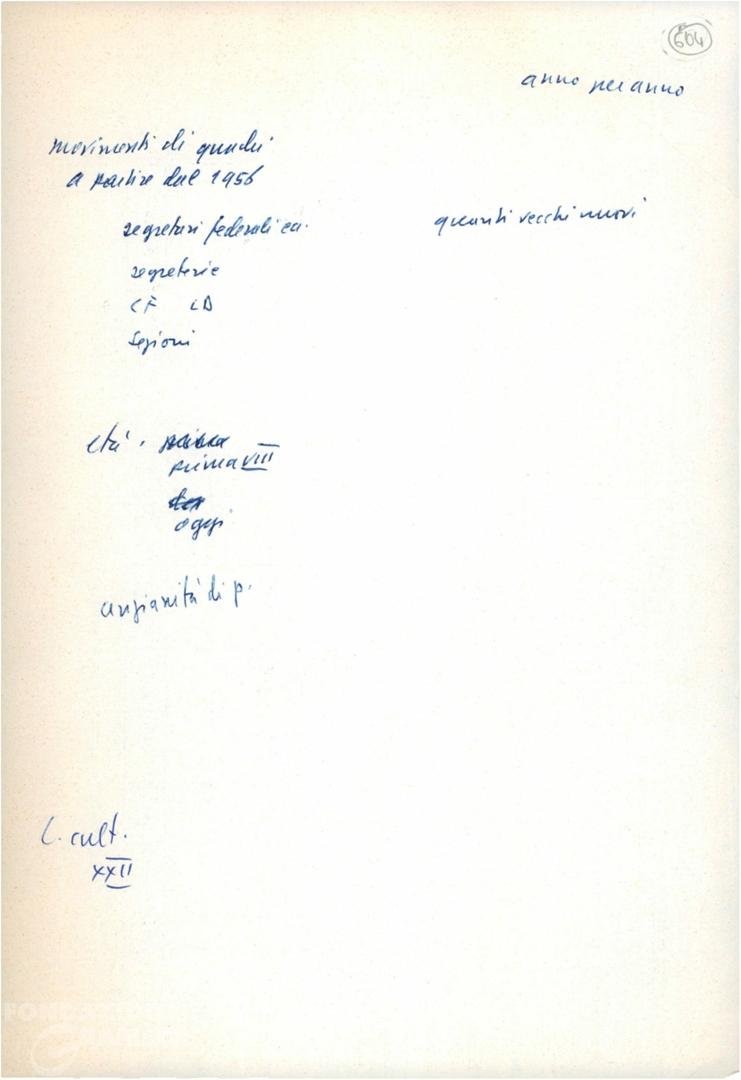 604
anno per anno
movimenti di quadri
a partire dal 1956
segretari federali ca.
quanti vecchi nuovi
segreterie
CF CD
Sezioni
età .
prima VIII
oggi
anzianità di p.
C. cult.
XXII
FONDAZIONE
GRAMSCI